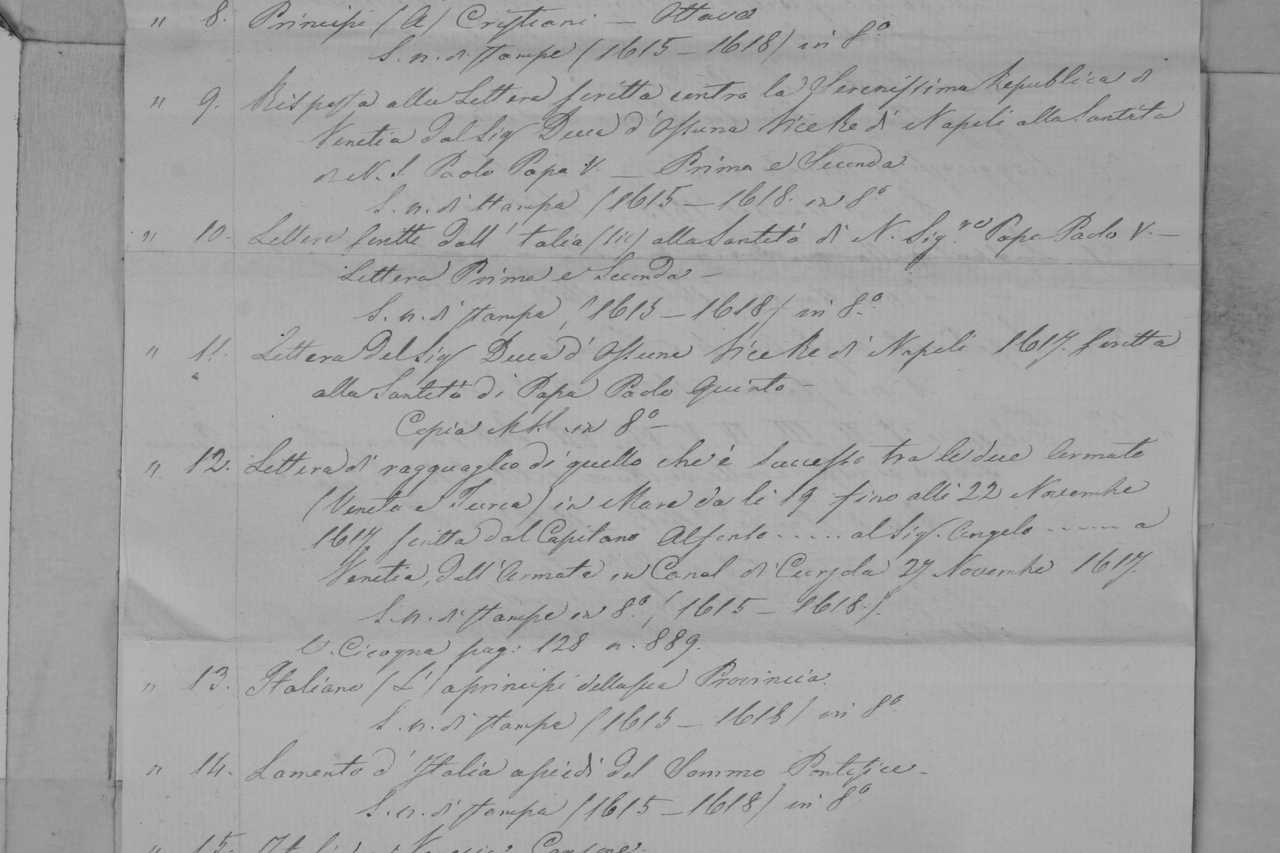 " 8. Principi (Ai) Cristiani — Ottava
S. n. di stampa (1615 — 1618) in 8.º
" 9. Risposta alla Lettera scritta contro la Serenissima Republica di
Venetia dal Sig Duca d'Ossuna Vice Re di Napoli alla Santita
di N. S. Paolo Papa V. — Prima e Seconda
S. n. di stampa (1615 — 1618. in 8º
" 10. Lettere scritte dall'Italia (sic) alla Santità di N. Sig.re Papa Paolo V. —
Lettera Prima e Seconda —
S. n. di stampa, (1615 — 1618) in 8.º
" 11. Lettera del Sig Duca d'Ossuna Vice Re di Napoli 1617. scritta
alla Santità di Papa Paolo Quinto —
Copia in 8º —
" 12. Lettera di ragguaglio di quello che è successo tra le due Armate
(Veneta e Turca) in Mare da li 19 fino alli 22 Novembre
1617 scritta dal Capitano ..... al Sig. Angelo ...... a
Venetia, dall'Armata in Canal di Curzola 27 Novembre 1617.
S. n. di stampa in 8.º, (1615 — 1618.).
V. Cicogna pag: 128 n. 889.
" 13. Italiano (L') a principi della sua Provincia.
S. n. di stampa (1615 — 1618) in 8º
" 14. Lamento d'Italia a piedi del Sommo Pontefice —
S. n. di stampa (1615 — 1618) in 8º
" 15.